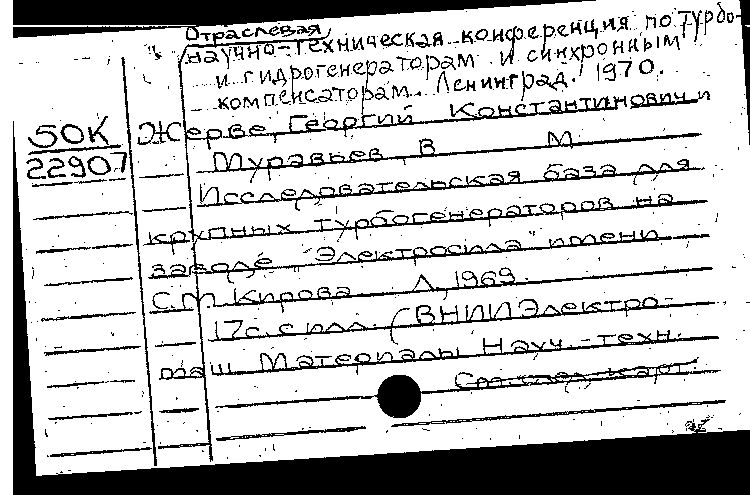 Отраслевая
научно-техническая конференция по турбо-
и гидрогенераторам и синхронным
компенсаторам. Ленинград. 1970.
50К
22907
Жерве, Георгий Константинович и
Муравьев, В М.
Исследовательская база для
крупных турбогенераторов на
заводе "Электросила" имени
С.М Кирова Л, 1969.
17с. с илл. (ВНИИЭлектро-
маш Материалы Науч.-техн.
См. след. карт.